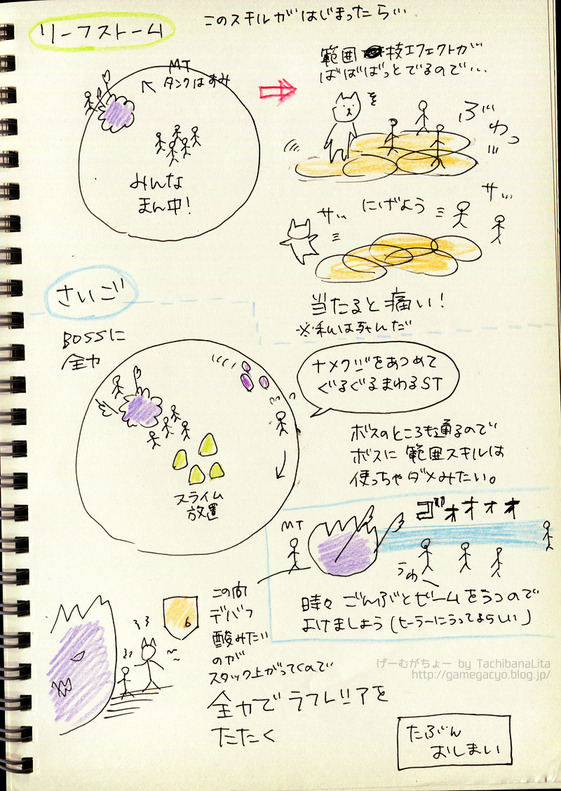 リーフストーム
このスキルがはじまったら…
MT
タンクはすみ
みんな
まん中!
範囲 技エフェクトが
ばばばっとでるので…
を
ぶわっ
サッ
にげよう
サッ
当たると痛い!
※私は死んだ
さいご
BOSSに
全力
ナメクジをあつめて
ぐるぐるまわるST
スライム
放置
ボスのところも通るので
ボスに範囲スキルは
使っちゃダメみたい。
MT
ゴォォォォ
うわ
時々 ごんぶとビームをうつので
よけましょう(ヒーラーにうってるらしい)
この間
デバフ
酸みたい
のが
スタック上がってくので
全力でラフレシアを
たたく
6
げーむがちょー by TachibanaLita
http://gamegacyo.blog.jp/
たぶん
おしまい